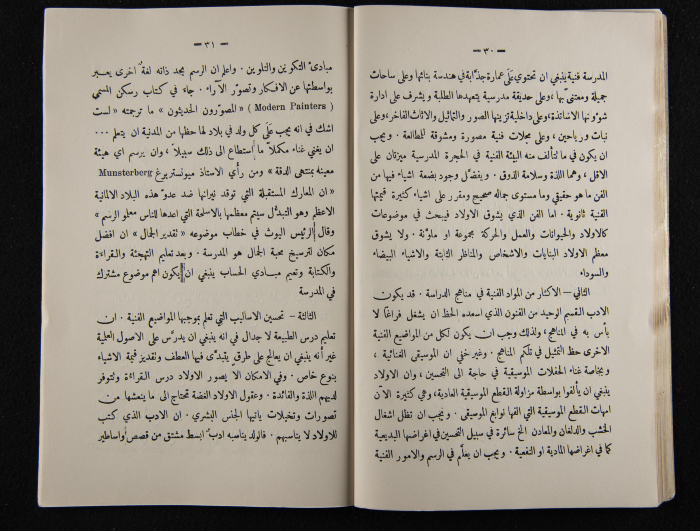 — ٣٠ —
المدرسة فنية ينبغي ان تحتوي على عمارة جذابة في هندسة بنائها وعلى ساحات
جميلة ومعتنى بها، وعلى حديقة مدرسية يتعهدها الطلبة ويشرف على ادارة
شؤونها الاساتذة، وعلى داخلية تزينها الصور والتماثيل والاثاث الفاخر، وعلى
نبات ورياحين، وعلى مجلات فنية مصورة ومشوقة للمطالعة. ويجب
ان يكون في ما تتألف منه البيئة الفنية في الحجرة المدرسية ميزتان على
الاقل، وهما اللذة وسلامة الذوق. ويفضل وجود بضعة اشياء فيها من
الفن ما هو حقيقي وما مستوى جماله صحيح ومقرر على اشياء كثيرة قيمتها
الفنية ثانوية. اما الفن الذي يشوق الاولاد فيبحث في موضوعات
كالاولاد والحيوانات والعمل والحركة مجموعة او ملونة. ولا يشوق
معظم الاولاد البنايات والاشخاص والمناظر الثابتة والاشياء البيضاء
والسوداء
الثاني — الاكثار من المواد الفنية في مناهج الدراسة. قد يكون
الادب القسم الوحيد من الفنون الذي اسعده الحظ ان يشغل فراغًا لا
بأس به في المناهج، ولذلك وجب ان يكون لكل من المواضيع الفنية
الاخرى حظ التمثيل في تلكم المناهج. وغير خفي ان الموسيقى الغنائية،
وبخاصة غناء الحفلات الموسيقية في حاجة الى التحسين، وان الاولاد
ينبغي ان يألفوا بواسطة مزاولة القطع الموسيقية العادية، وهي كثيرة الآن
امهات القطع الموسيقية التي الفها نوابغ الموسيقى. ويجب ان تظل اشغال
الخشب والدلغان والمعادن الخ سائرة في سبيل التحسين في اغراضها البديعية
كما في اغراضها المادية او النفعية. ويجب ان يعلّم في الرسم والامور الفنية
— ٣١ —
مبادئ التكوين والتلوين. واعلم ان الرسم بحد ذاته لغة اخرى يعبر
بواسطتها عن الافكار وتصور الآراء. جاء في كتاب رسكن المسمى
(Modern Painters) «المصورون الحديثون» ما ترجمته «لست
اشك في انه يجب على كل ولد في بلاد لها حظها من المدنية ان يتعلم ...
ان يغني غناء مكملًا ما استطاع الى ذلك سبيلا، وان يرسم اي هيئة
معينة بمنتهى الدقة» ومن رأي الاستاذ ميونستربورغ Munsterberg
«ان المعارك المستقبلة التي توقد نيرانها ضد عدو هذه البلاد الالمانية
الاعظم وهو التبذل سيتم معظمها بالاسلحة التي اعدها للناس معلمو الرسم»
وقال الرئيس اليوت في خطاب موضوعه «تقدير الجمال» ان افضل
مكان لترسيخ محبة الجمال هو المدرسة. وبعد تعليم التهجئة والقراءة
والكتابة وتعيم مبادي الحساب ينبغي ان يكون اهم موضوع مشترك
في المدرسة
الثالثة — تحسين الاساليب التي تعلم بموجبها المواضيع الفنية. ان
تعليم درس الطبيعة لا جدال في انه ينبغي ان يدرّس على الاصول العملية
غير أنه ينبغي ان يعالج على طرق يتبدّى فيها العطف وتقدير قيمة الاشياء
بنوع خاص. وفي الامكان الا يصور الاولاد درس القراءة ولتتوفر
لديهم اللذة والفائدة. وعقول الاولاد الغضة تحتاج الى ما ينعشها من
تصورات وتخيلات يأتيها الجنس البشري. ان الادب الذي كتب
للاولاد لا يناسبهم. فالولد يناسبه ادب ابسط مشتق من قصص وأساطير